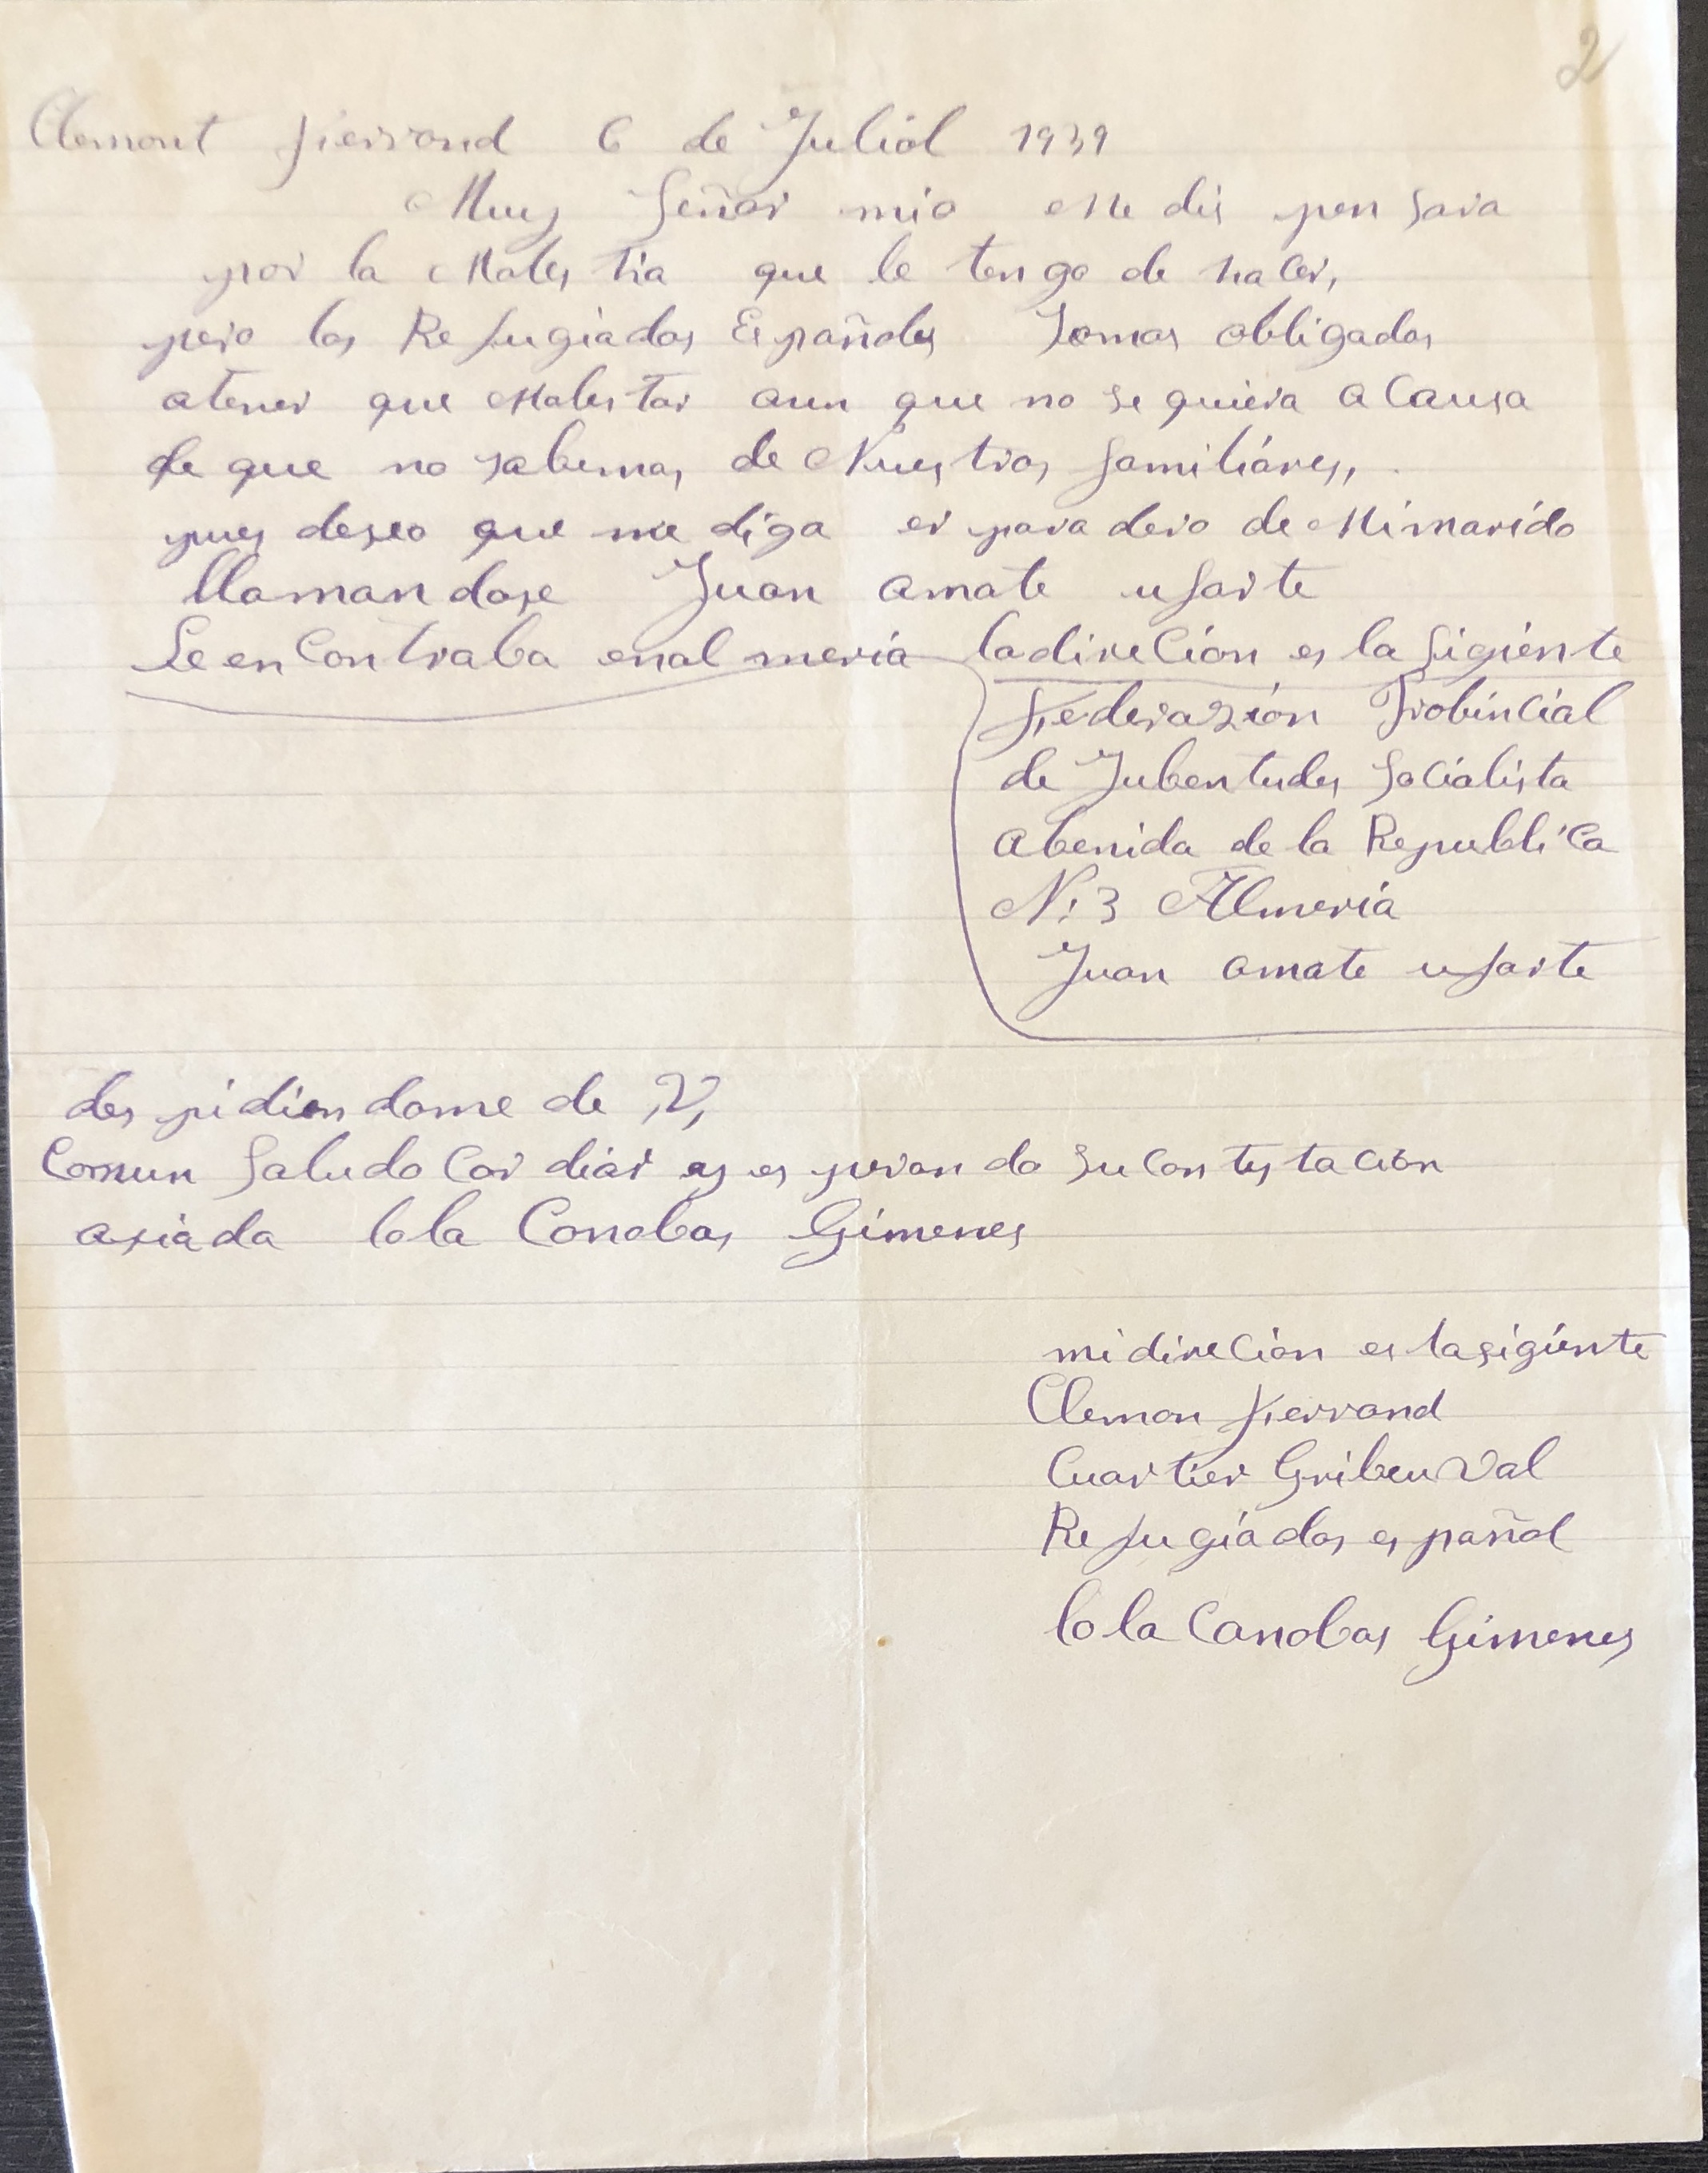 2
Clemont fierrond 6 de Juliol 1939
Muy Señor mio Me dis pen sara
por la Moles tia que le ten go de hacer,
pero los Refugiados Españoles Somos obligados
atener que Molestar aun que no se quiera a Causa
de que no sabemos de Nuestros familiáres,
pues deseo que me diga er para dero de Mimarido
llaman dose Juan amate ufarte
Se en Contraba enal meria la direCión es la sigiénte
Federazión Probincial
de Jubentudes Socialista
abenida de la Republica
N: 3 Almeria
Juan amate ufarte
des pidien dome de V,
Comun Saludo Cor diar y es peran do su Con tes tación
axiada lola Conobas Gimenes
mi direCión es la sigiénte
Clemon fierrond
Cuartier Gribeu Val
Refugiados es pañol
lola Canobas Gimenes